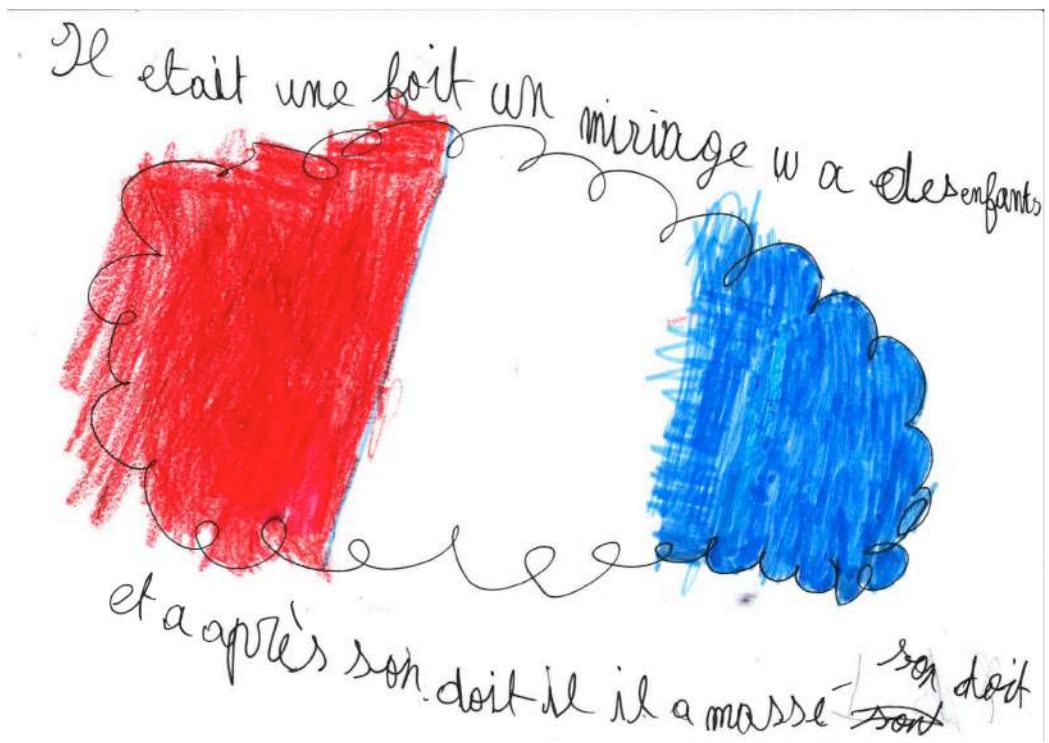 Il etait une foit un miriage w a des enfants
et a après son doit il il a massé son doit
son